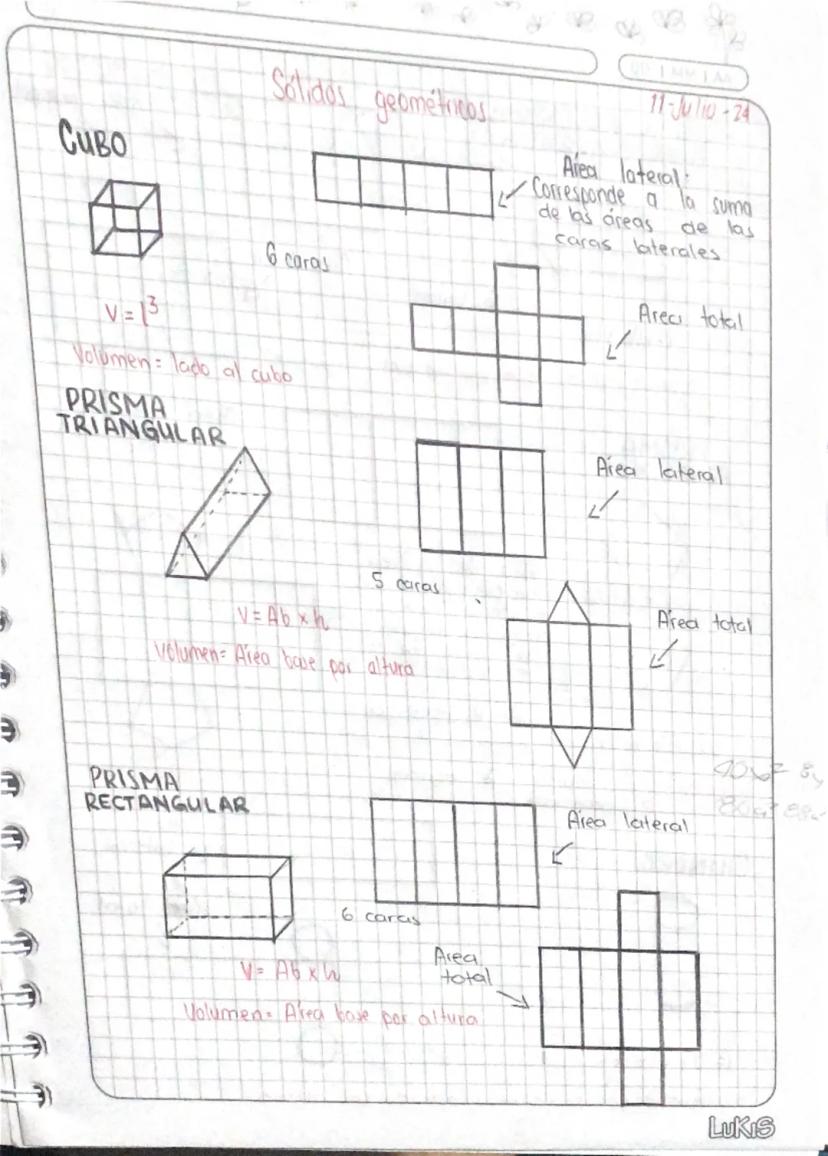 Sólidos geométricos
11-Julio-24
CUBO
Área lateral:
Corresponde a la suma
de las áreas de las
caras laterales
6 caras
V = l³
Area total
Volumen = lado al cubo
PRISMA
TRIANGULAR
Área lateral
5 caras
V = Ab x h
Área total
Volumen = Área base por altura
PRISMA
RECTANGULAR
Área lateral
6 caras
Area
total
V = Ab x h
Volumen = Área base por altura
LUKIS